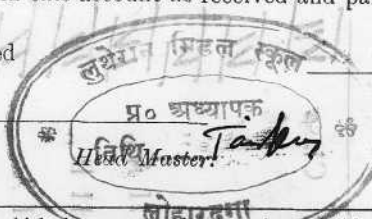 this account as received and pa
ed
लुथेरान मिडल स्कूल
प्र० अध्यापक
तिथि
Head Master.
लोहारदगा